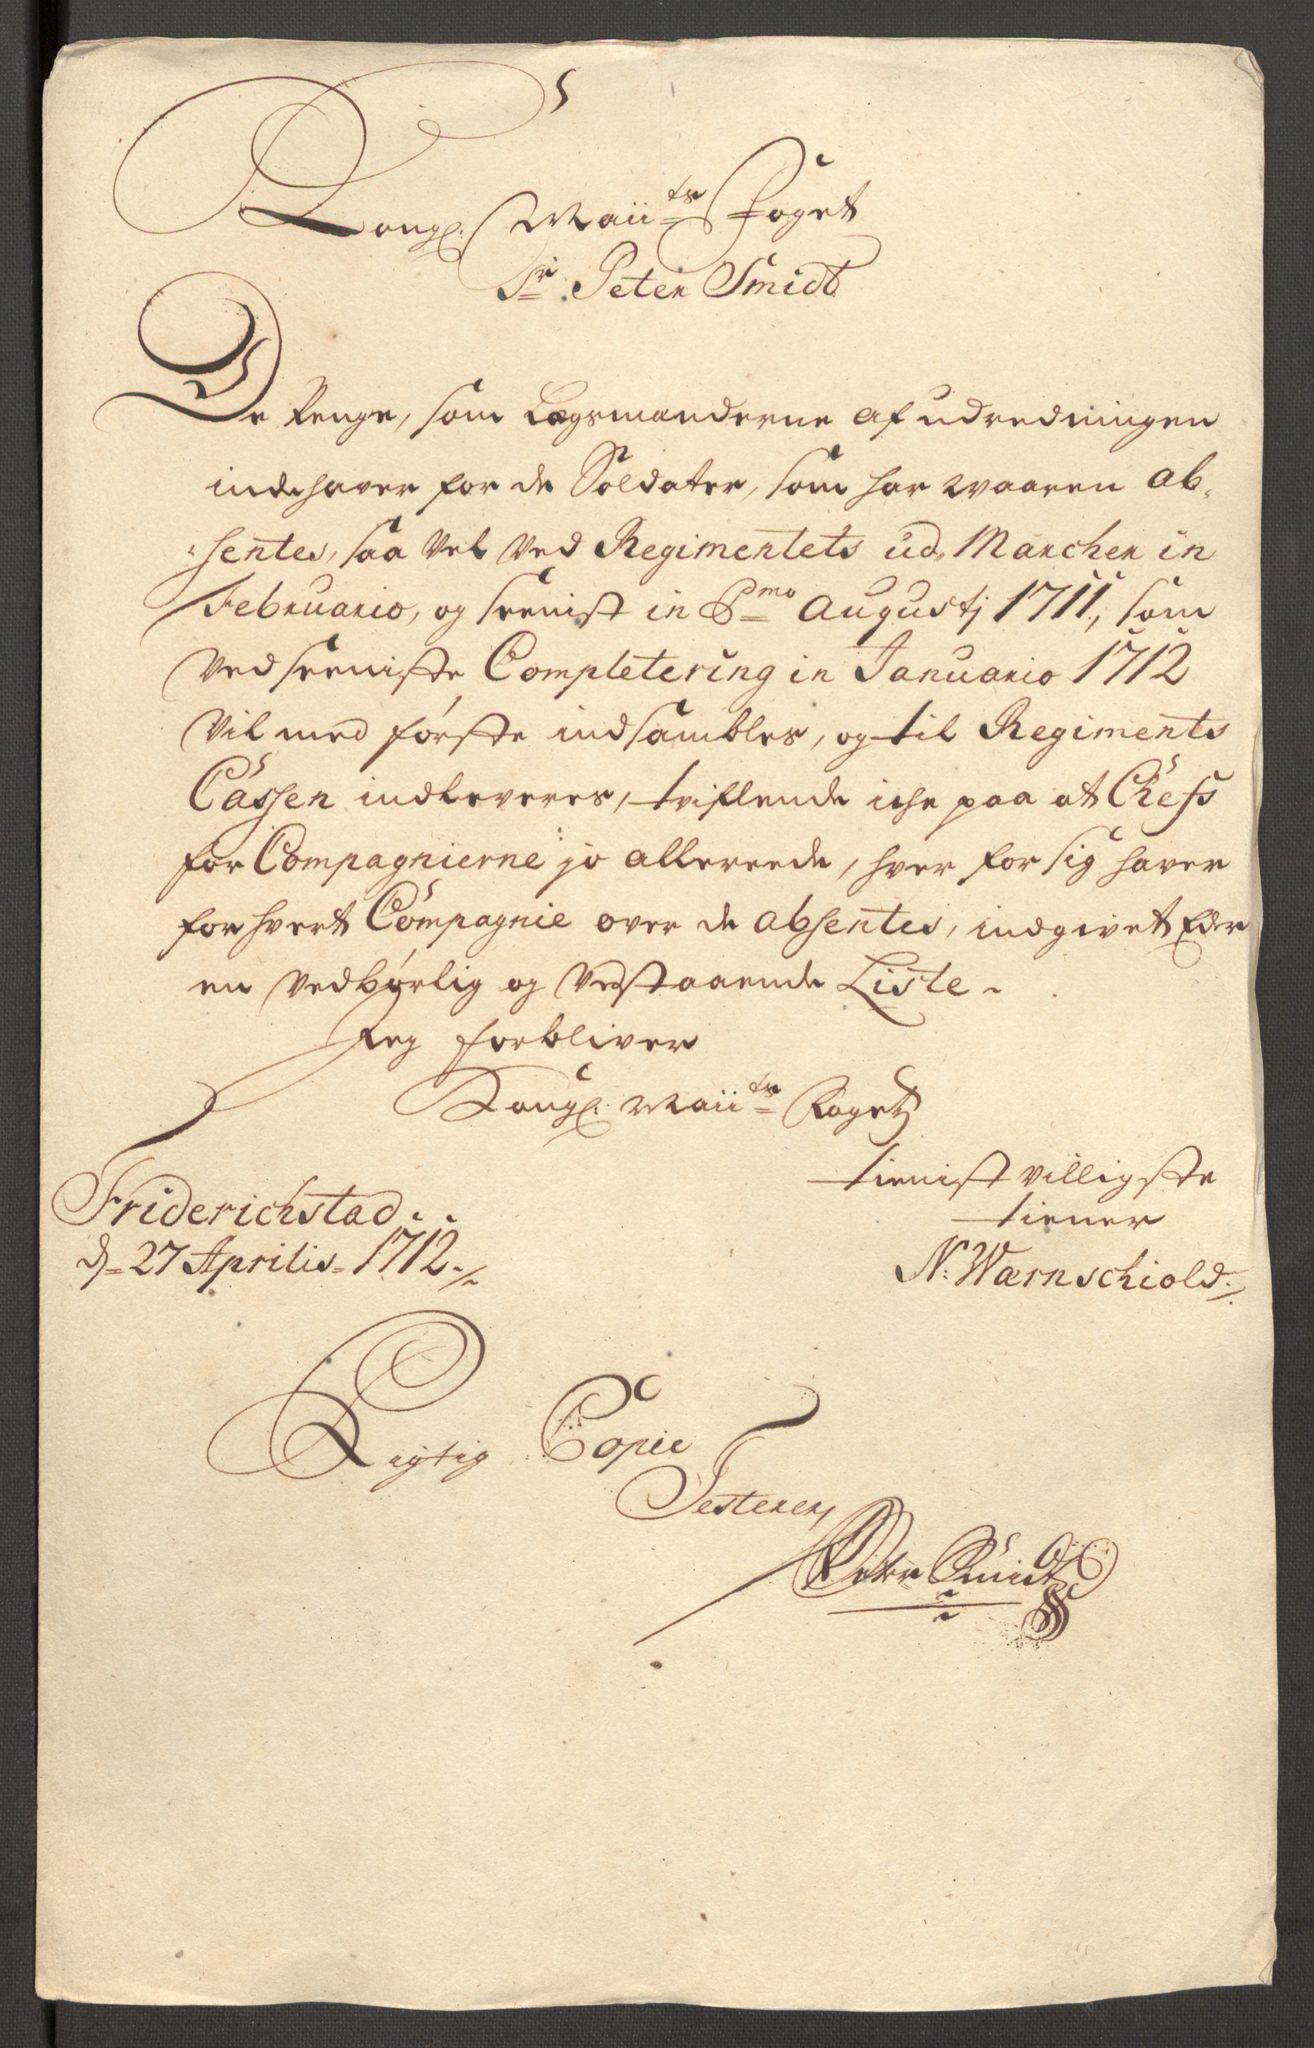 Kongl: Maii<sup>ts</sup> Foget
S<sup>r</sup>. Peter Smidt
De Penge, som Lægsmænderne af udredningen
indehaver for de Soldater, som har waaren ab-
sentes, saa vel ved Regimentets ud Marcher in
Februario, og seenist in P<sup>mo</sup> Augustj 1711, som
ved seeniste Completering in Januario 1712
vil med første indsambles, og til Regiments
Cassen indleveres, tviflende iche paa at Chefs
for Compagnierne jo allereede, hver for sig haver
for hvert Compagnie over de absentes, indgivet Eder
en vedbørlig og vedstaaende Liste.
Jeg forbliver
Kongl: Maii<sup>ts</sup> Fogets
tienist villigste
tiener
Friderichstad
d. 27 Aprilis 1712.
N: Wærnschiold
Rigtig Copie
Testerer,
Peter Smidt